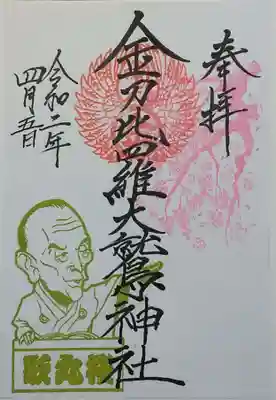 奉拝
金刀比羅大鷲神社
令和二年
四月五日
歌丸桜